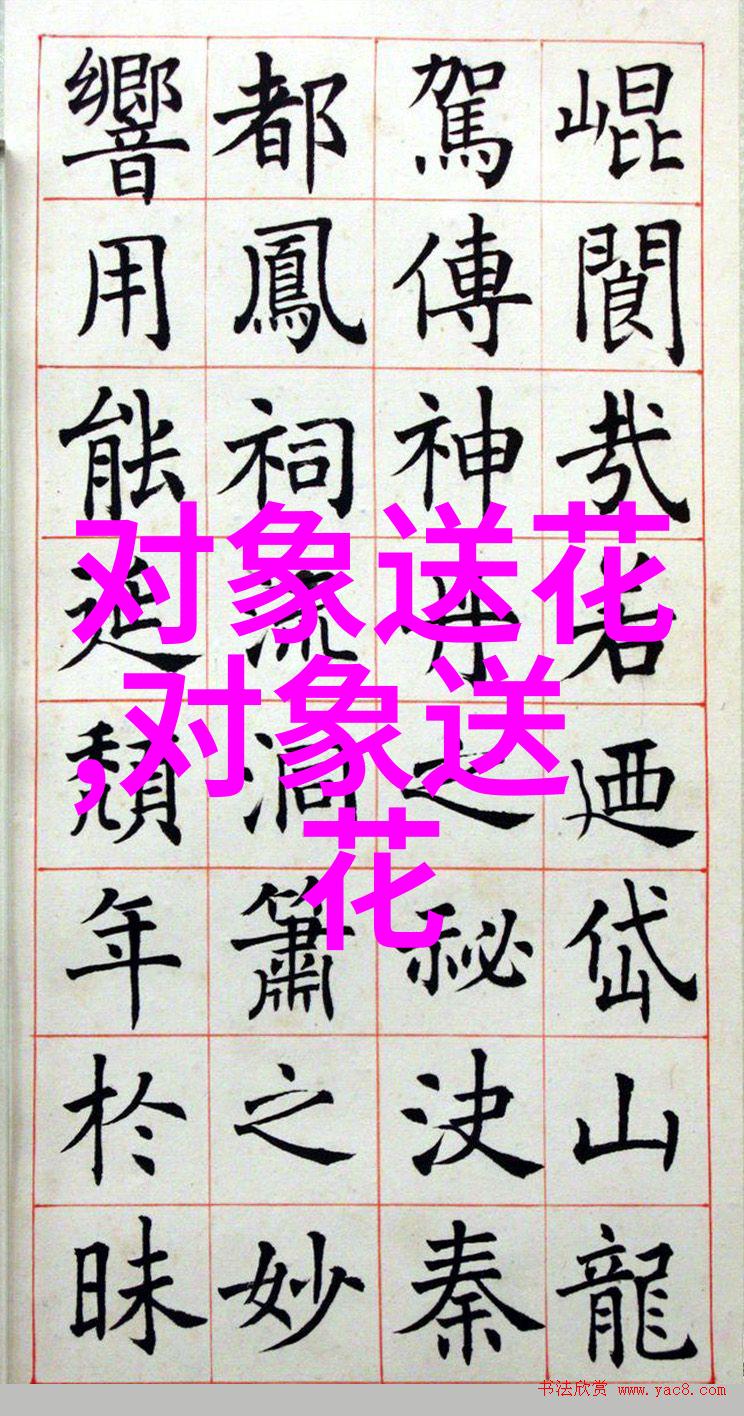 崐閬若迺岱山龍
駕傳神丹之秘決秦
都鳳祠流洞簫之妙
響用能延頹年於昧
对象送花
,对象送
花
书法欣赏 www.yac8.com